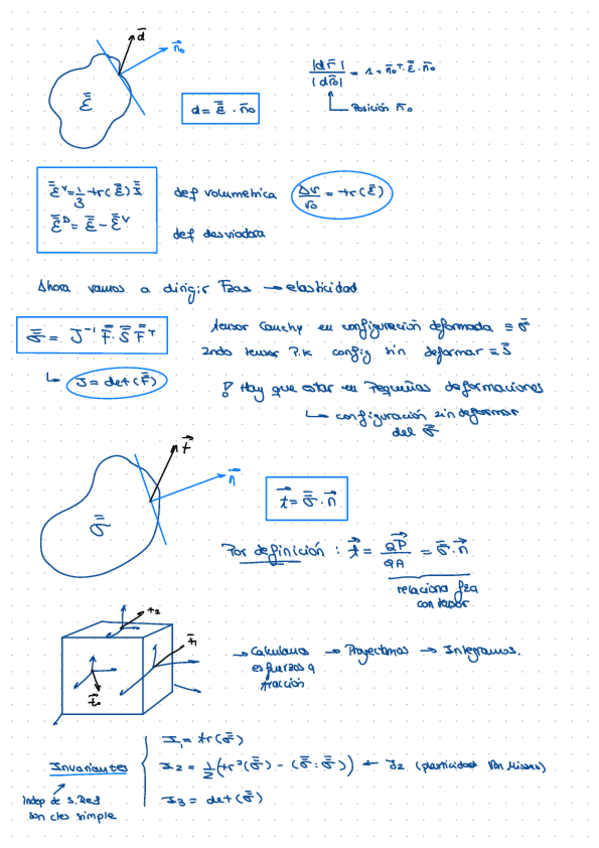 d
n̄₀
ε̿
d = ε̿ · n̄₀
|dr̄| / |dr̄₀| = 1 + n̄₀ᵀ · ε̿ · n̄₀
Posición n̄₀
ε̿ⱽ = 1/3 tr(ε̿) I̿
def volumetrica
Δv/v₀ = tr(ε̿)
ε̿ᴰ = ε̿ - ε̿ⱽ
def desviadora
Ahora vamos a dirigir Fzas → elasticidad
σ̿ = J⁻¹ F̿ · S̿ F̿ᵀ
tensor Cauchy en configuración deformada ≡ σ̿
2ndo tensor P.K config sin deformar ≡ S̿
J = det(F̿)
! Hay que estar en Pequeñas deformaciones
configuración sin deformar
del σ̿
t⃗
n⃗
σ̿
t⃗ = σ̿ · n⃗
Por definición : t⃗ = dP⃗/dA = σ̿ · n⃗
relaciona fza
con tensor
t₂
t̄₁
→ Calculamos → Proyectamos → Integramos.
esfuerzos a
tracción
Invariantes
I₁ = tr(σ̿)
I₂ = 1/2 (tr²(σ̿) - (σ̿ : σ̿)) ← J₂ (plasticidad Von Misses)
I₃ = det(σ̿)
Indep de s. Ref
son ctes simple